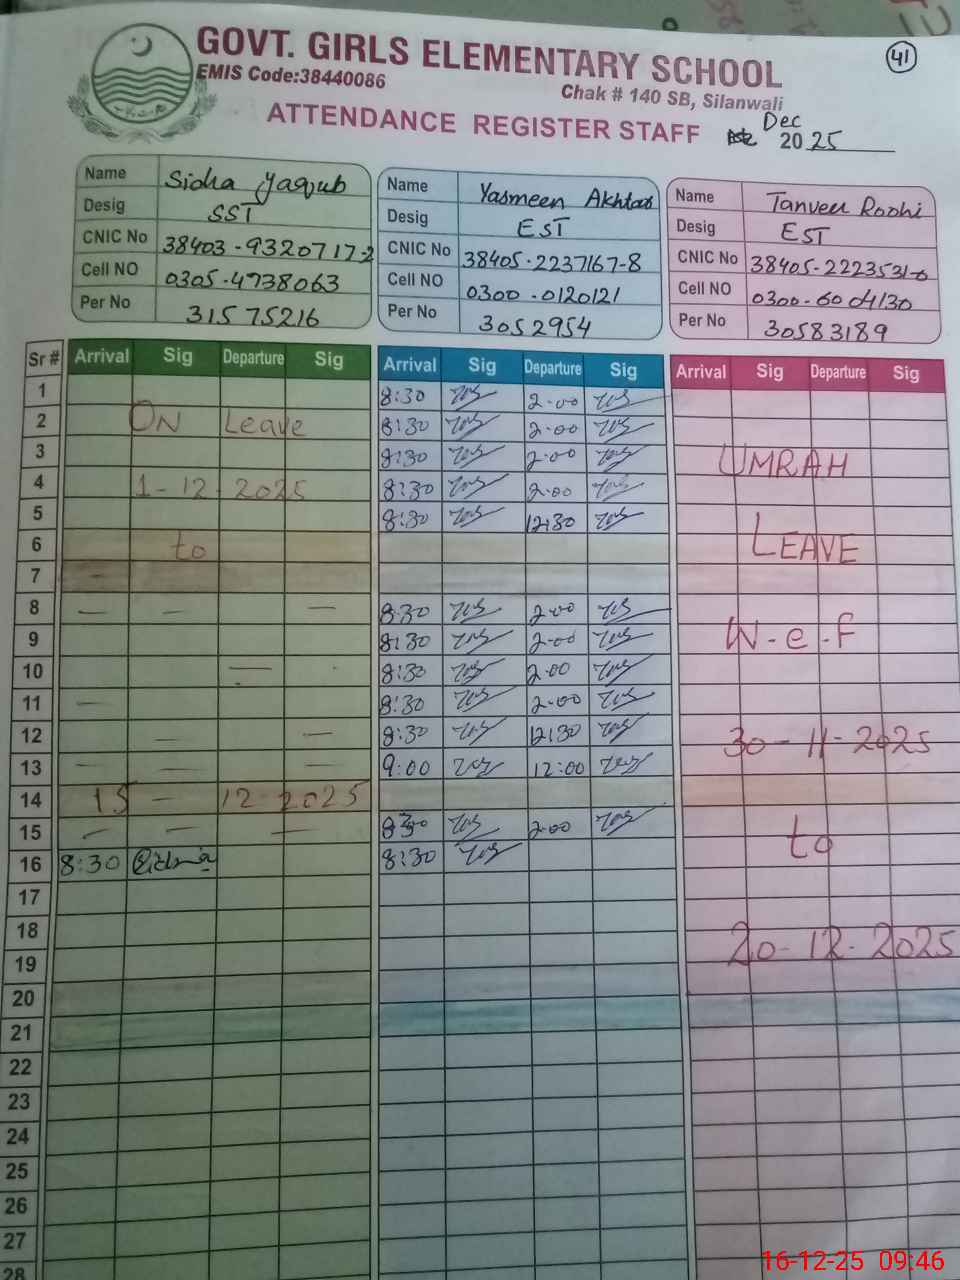 41
GOVT. GIRLS ELEMENTARY SCHOOL
EMIS Code:38440086
Chak # 140 SB, Silanwali
ATTENDANCE REGISTER STAFF
Dec
20 25
Name Sidra Yaqub
Desig SST
CNIC No 38403-9320717-2
Cell NO 0305-4738063
Per No 31575216
Name Yasmeen Akhtar
Desig EST
CNIC No 38405-2237167-8
Cell NO 0300-0120121
Per No 3052954
Name Tanveer Roohi
Desig EST
CNIC No 38405-2223531-6
Cell NO 0300-6004130
Per No 30583189
Sr # Arrival Sig Departure Sig Arrival Sig Departure Sig Arrival Sig Departure Sig
1 8:30 2-00
2 ON Leave 8:30 2-00
3 8:30 2-00 UMRAH
4 1-12-2025 8:30 2-00
5 8:30 12:30
6 to LEAVE
7 —
8 — — — 8:30 2-00
9 8:30 2-00 W-e-F
10 — 8:30 2-00
11 — 8:30 2-00
12 — — 8:30 12:30 30-11-2025
13 — — — 9:00 12:00
14 15 — 12-2025
15 — — — 830 2-00 to
16 8:30 Sidra 8:30
17
18
19 20-12-2025
20
21
22
23
24
25
26
27
28
16-12-25 09:46